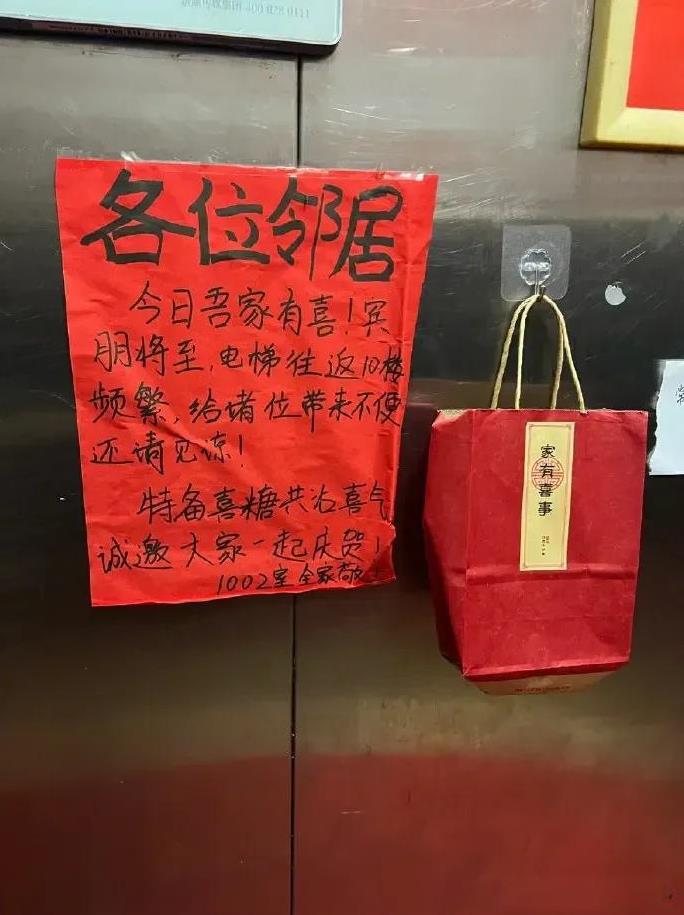 400 028 0111
各位邻居
今日吾家有喜！宾
朋将至，电梯往返10楼
频繁，给诸位带来不便
还请见谅！
特备喜糖共沾喜气
诚邀大家一起庆贺！
1002室 全家敬上
家有喜事